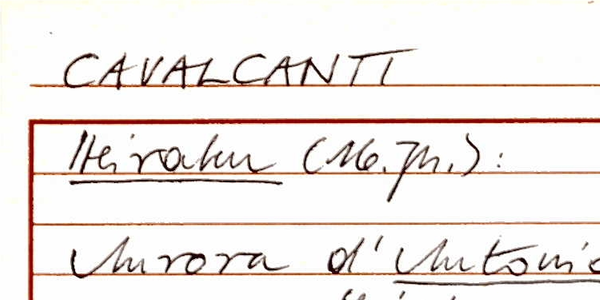 CAVALCANTI
Heiraten (16. Jh.):
Aurora d'Antonio